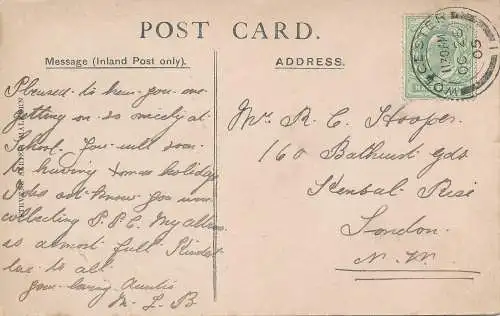 POST CARD.
Message (Inland Post only).
ADDRESS.
Pleased to hear you are
getting on so nicely at
School. You will soon
be having Xmas holidays
I did not know you were
collecting P.P.C. My album
is almost full Kindest
love to all
your loving Auntie
M. L. B
Mr R. C. Hooper
160 Bathurst Gds
Kensal Rise
London
N. W.
WORCESTER
11.30 PM
OC 2
05
1